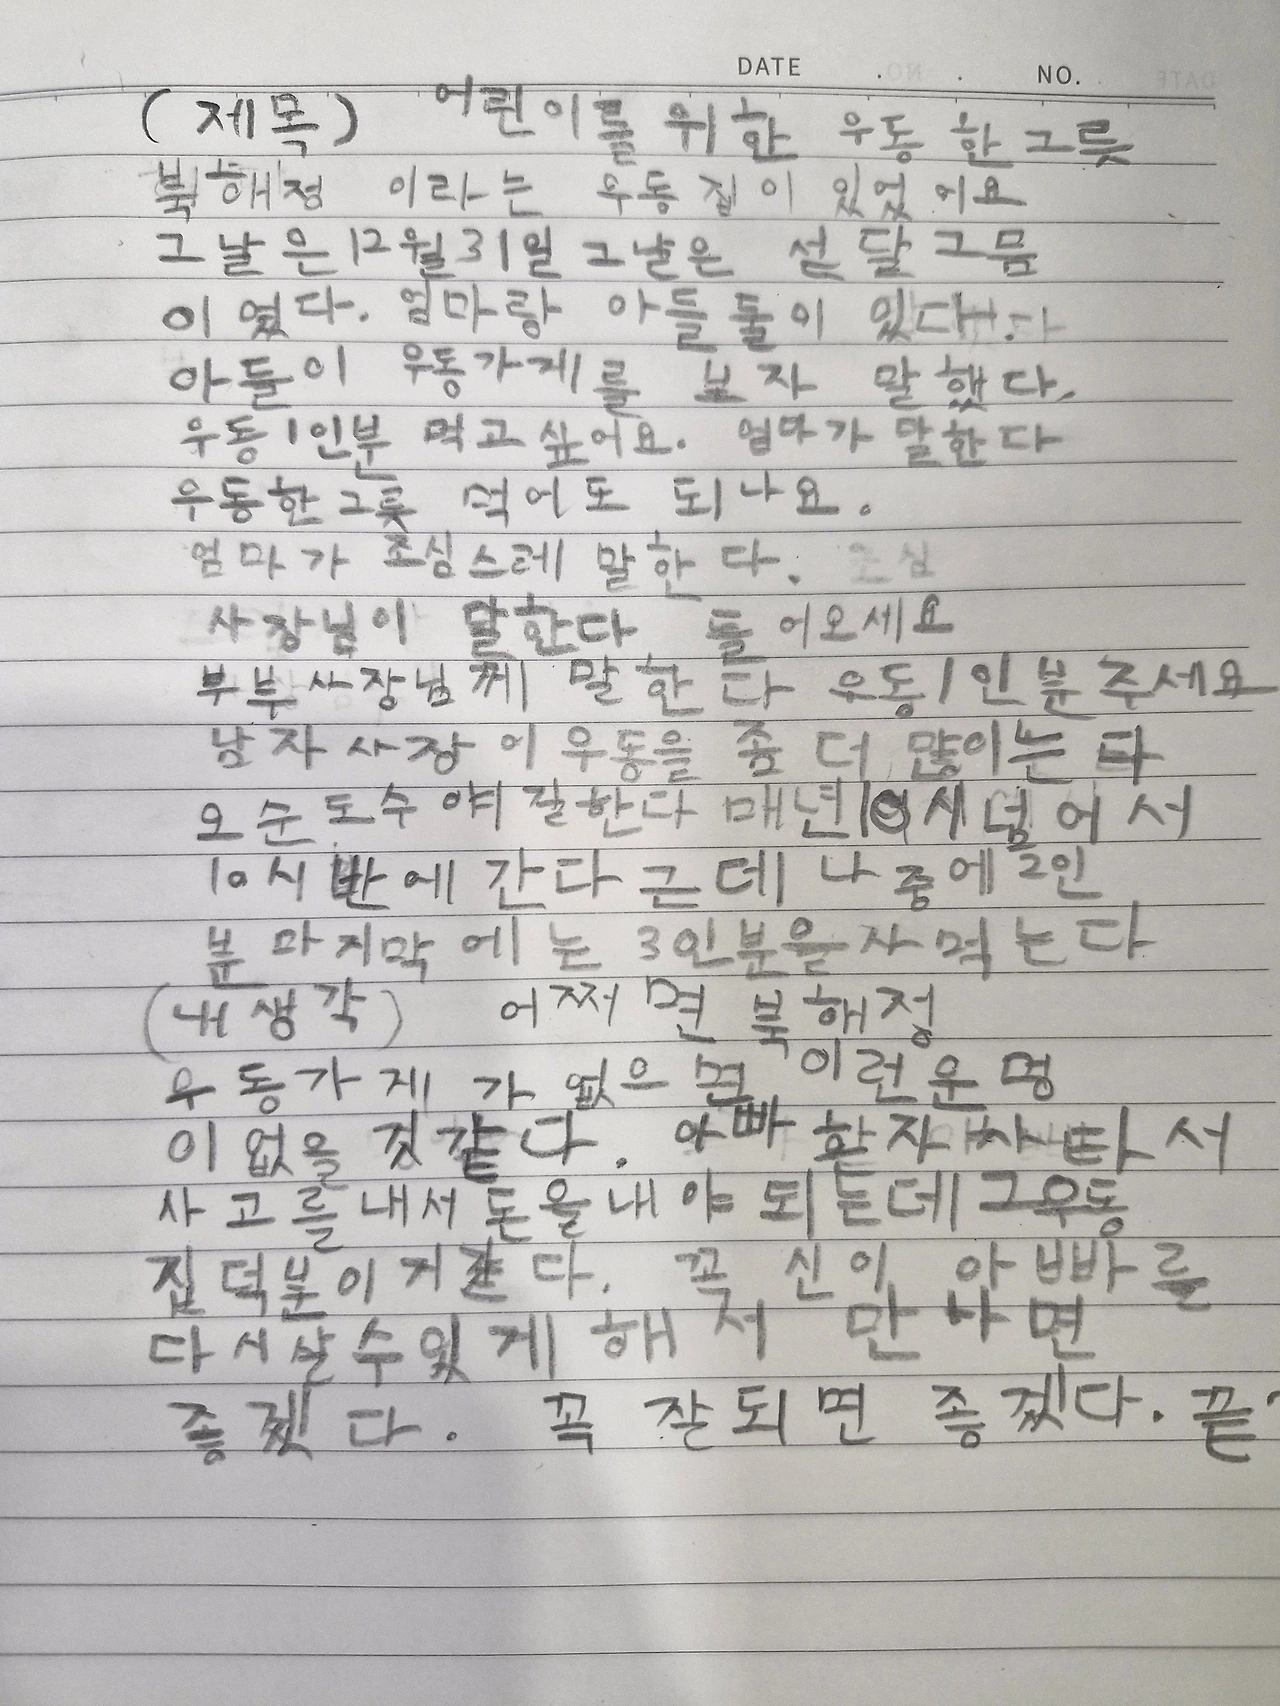 DATE . . NO.
(제목) 어린이를 위한 우동 한그릇
북해정 이라는 우동집이 있었어요
그날은12월31일 그날은 섣달그믐
이였다. 엄마랑 아들둘이 있다.
아들이 우동가게를 보자 말했다.
우동1인분 먹고싶어요. 엄마가 말한다
우동한그릇 먹어도 되나요.
엄마가 조심스레 말한다.
사장님이 말한다 들어오세요
부부사장님께 말한다 우동1인분주세요
남자사장이우동을 좀 더 많이는다
오순도수 얘질한다 매년10시넘어서
10시반에 간다 근데 나중에2인
분 마지막에는 3인분을사먹는다
(내생각) 어쩌면 북해정
우동가게가 없으면 이런운명
이없을것같다. 아빠 환자차타서
사고를내서돈을내야되는데그우동
집덕분이거같다. 꼭 신이 아빠를
다시살수있게해서 만나면
좋겠다. 꼭 잘되면 좋겠다. 끝